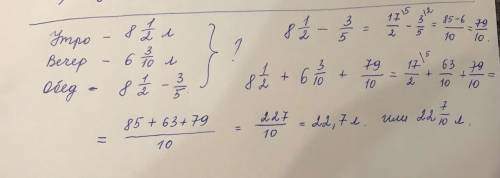 Утро - 8 1/2 л
Вечер - 6 3/10 л
Обед - 8 1/2 - 3/5.
} ?
8 1/2 - 3/5 = 17/2 \5 - 3/5 \2 = 85-6/10 = 79/10.
8 1/2 + 6 3/10 + 79/10 = 17/2 \5 + 63/10 + 79/10 =
= 85+63+79/10 = 227/10 = 22,7 л. или 22 7/10 л.